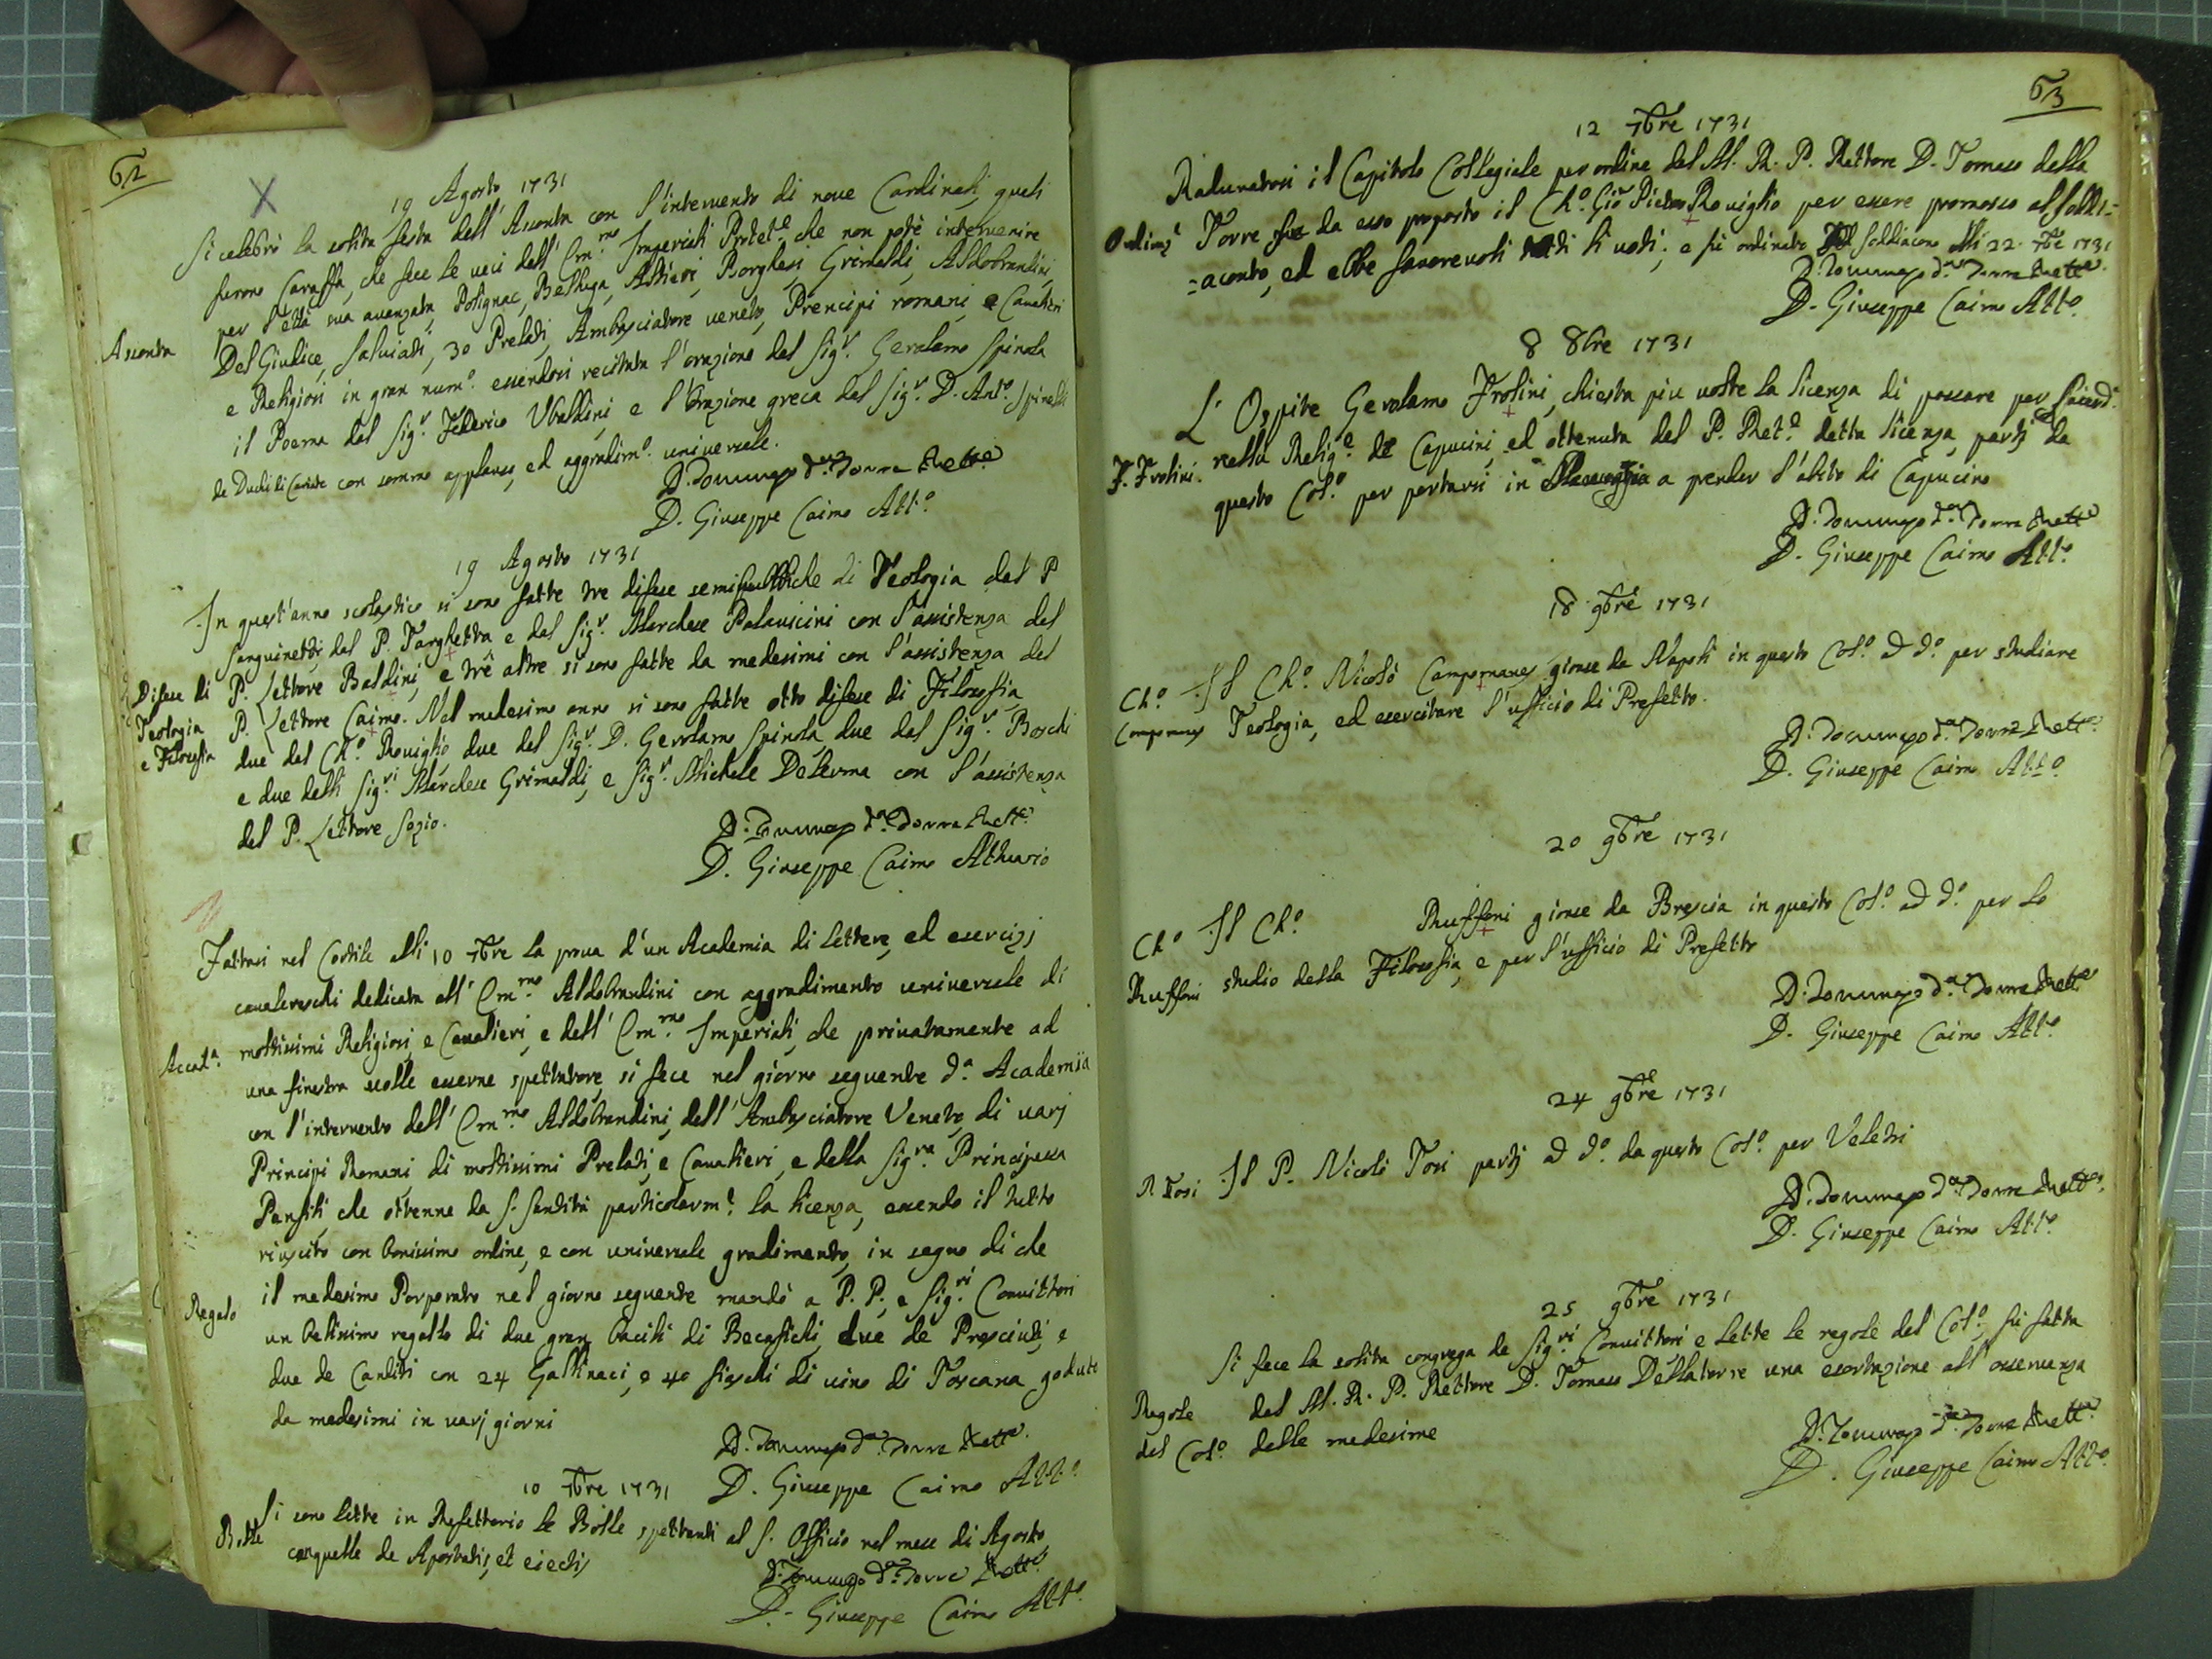 62
19 Agosto 1731
Si celebrò la solita festa dell'Assonta con l'intervento di nove Cardinali, quali
furono Caraffa, che fece le veci dell'Em.mo Imperiali Protet.e che non potè intervenire
per l'età sua avanzata, Polignac, Belluga, Altieri, Borghesi, Grimaldi, Aldobrandini,
Assonta
Del Giudice, Salviati, 30 Prelati, Ambasciatore veneto, Prencipi romani, e Cavalieri
e Religiosi in gran num.o essendosi recitata l'orazione dal Sig.r Gerolamo Spinola
il Poema dal Sig.r Federico Ubaldini, e l'Orazione greca dal Sig.r D. Ant.o Spinelli
de Duchi di con sommo applauso, ed aggradim.o universale.
D. Tommaso d.a Torre Rett.e
D. Giuseppe Caimo Att.o
19 Agosto 1731
In quest'anno scolastico si sono fatte tre difese semipubbliche di Teologia dal P
Sanguinetti, dal P. Targhetta e dal Sig.r Marchese Palavicini con l'assistenza del
Difese di
Teologia
e Filosofia
P. Lettore Baldini, e tre altre si sono fatte da medesimi con l'assistenza del
P. Lettore Caimo. Nel medesimo anno si sono fatte otto difese di Filosofia,
due dal Ch.o Roviglio, due dal Sig.r D. Gerolamo Spinola, due dal Sig.r Boschi
e due dalli Sig.ri Marchese Grimaldi, e Sig.r Michele DeLerma con l'assistenza
del P. Lettore Sozio.
D. Tommaso d.a Torre Rett.e
D. Giuseppe Caimo Attuario
Fattasi nel Cortile alli 10 7bre la prova d'un Academia di lettere, ed esercizj
cavalereschi dedicata all'Em.mo Aldobrandini con aggradimento universale di
moltissimi Religiosi, e Cavalieri, e dell'Em.mo Imperiali, che privatamente ad
Accad.a
una finestra volle esserne spettatore, si fece nel giorno seguente d.a Academia
con l'intervento dell'Em.mo Aldobrandini, dell'Ambasciatore Veneto, di varj
Principi Romani, di moltissimi Prelati, e Cavalieri, e della Sig.ra Principessa
Panfili, che ottenne da S. Santità particolarm.e la licenza, essendo il tutto
riuscito con bonissimo ordine, e con universale gradimento, in segno di che
Regalo
il medesimo Porporato nel giorno seguente mandò a P. P., e Sig.ri Convittori
un belissimo regallo di due gran bacili di Becafichi, due de Presciuti, e
due de Canditi con 24 Gallinaci, e 40 fiaschi di vino di Toscana goduti
da medesimi in varj giorni
D. Tommaso d.a Torre Rett.e
D. Giuseppe Caimo Att.o
10 7bre 1731
Bolle
Si sono lette in Refettorio le Bolle spettanti al S. Officio nel mese di Agosto,
con quelle de Apostatis, et eiectis
D. Tommaso d.a Torre Rett.e
D. Giuseppe Caimo Att.o
63
12 7bre 1731
Radunatosi il Capitolo Collegiale per ordine del M. R. P. Rettore D. Tomaso della
Ordinaz.e
Torre fu da esso proposto il Ch.o Gio Pietro Roviglio per essere promosso al Soddi=
=aconato, ed ebbe favorevoli tutti li voti; e fù ordinato Soddiacono alli 22 7bre 1731
D. Tommaso d.a Torre Rett.e
D. Giuseppe Caimo Att.o
8 8bre 1731
L'Ospite Gerolamo Frolini, chiesta più volte la licenza di passare per
nella Relig.e de Capucini, ed ottenuta dal P. Ret.e detta licenza, partj da
F. Frolini.
questo Col.o per portarsi in a prender l'abito di Capucino
D. Tommaso d.a Torre Rett.e
D. Giuseppe Caimo Att.o
18 9bre 1731
Ch.o
Campomanes
Il Ch.o Nicolò Campomanes gionse da Napoli in questo Col.o a d.o per studiare
Teologia, ed esercitare l'ufficio di Prefetto.
D. Tommaso d.a Torre Rett.e
D. Giuseppe Caimo Att.o
20 9bre 1731
Ch.o
Ruffoni
Il Ch.o Ruffoni gionse da Brescia in questo Col.o a d.o per lo
studio della Filosofia, e per l'ufficio di Prefetto
D. Tommaso d.a Torre Rett.e
D. Giuseppe Caimo Att.o
24 9bre 1731
P. Tosi
Il P. Nicolò Tosi partj a d.o da questo Col.o per Veletri
D. Tommaso d.a Torre Rett.e
D. Giuseppe Caimo Att.o
25 9bre 1731
Si fece la solita congrega de Sig.ri Convittori e lette le regole del Col.o, fù fatta
Regole
del Col.o
dal M. R. P. Rettore D. Tomaso Dellatorre una esortazione all'osservanza
delle medesime
D. Tommaso d.a Torre Rett.e
D. Giuseppe Caimo Att.o